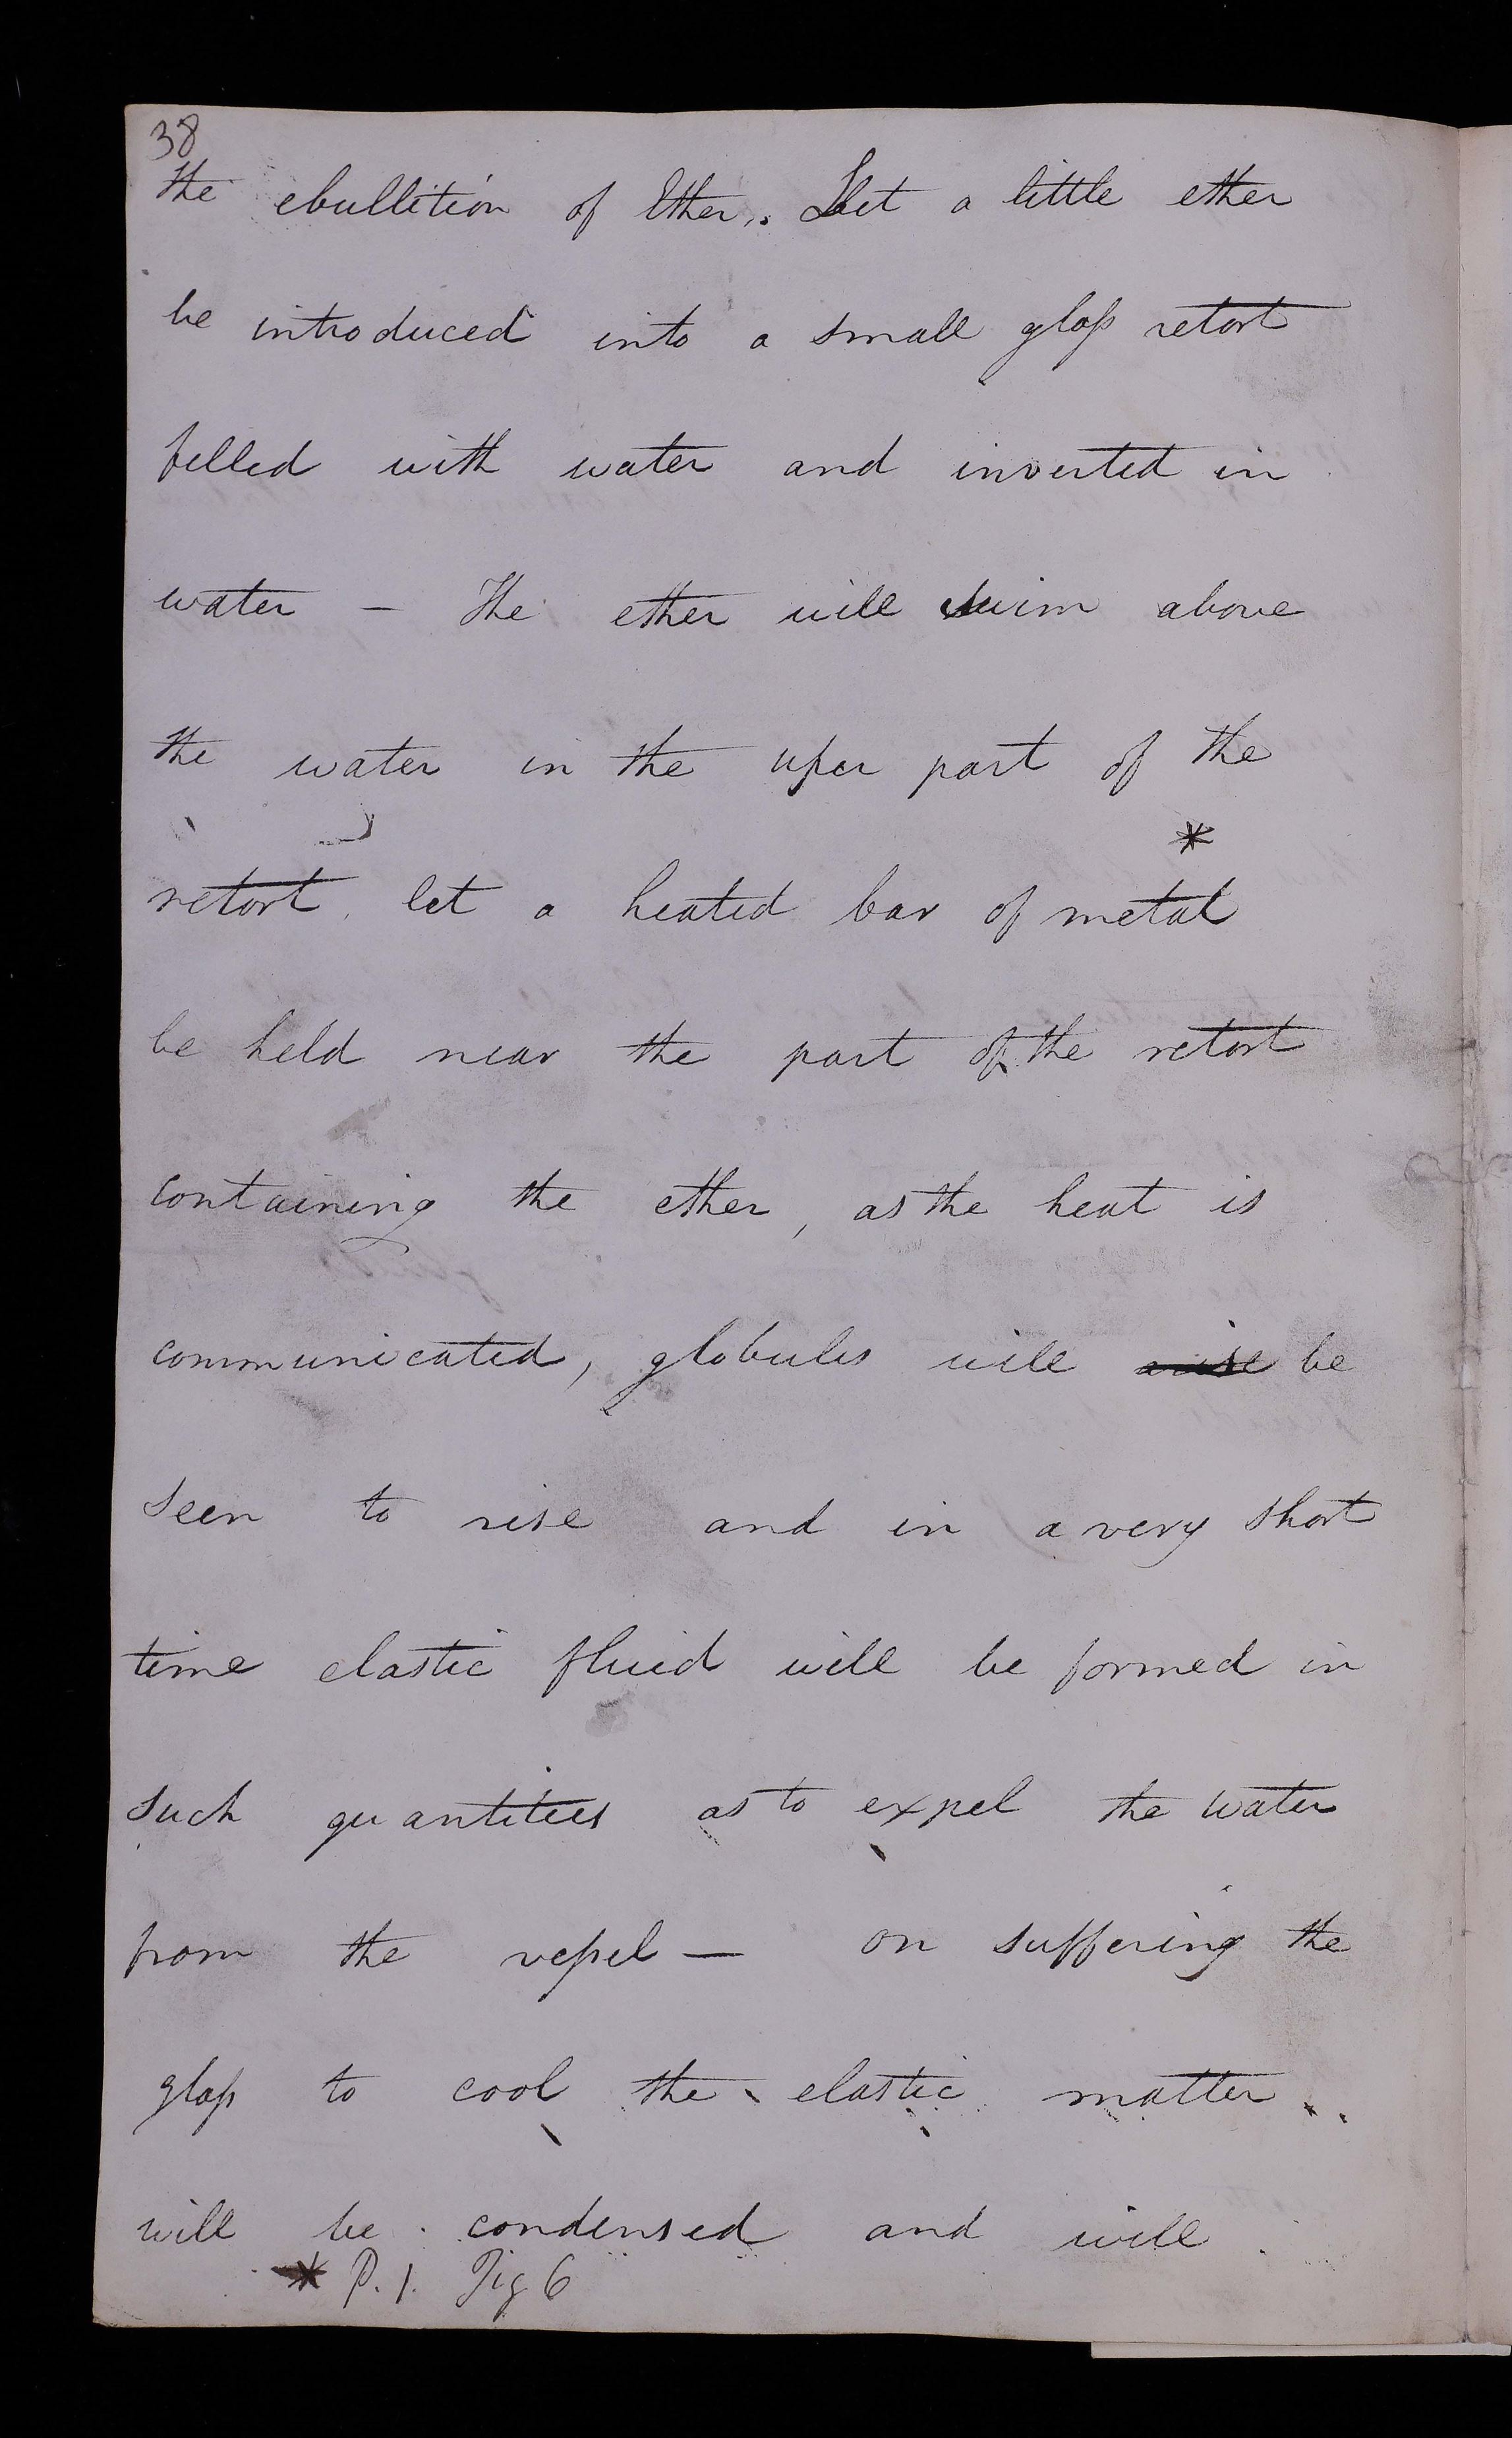 38
the ebullition of Ether. Let a little ether
be introduced into a small glaſs retort
filled with water and inverted in
water – The ether will swim above
the water in the uper part of the
*
retort. let a heated bar of metal
be held near the part of the retort
containing the ether, as the heat is
communicated, globules will arise be
seen to rise and in a very short
time elastic fluid will be formed in
such quantities as to expel the water
from the veſsel — on suffering the
glaſs to cool the elastic matter
will be condensed and will
* P. 1. Fig 6